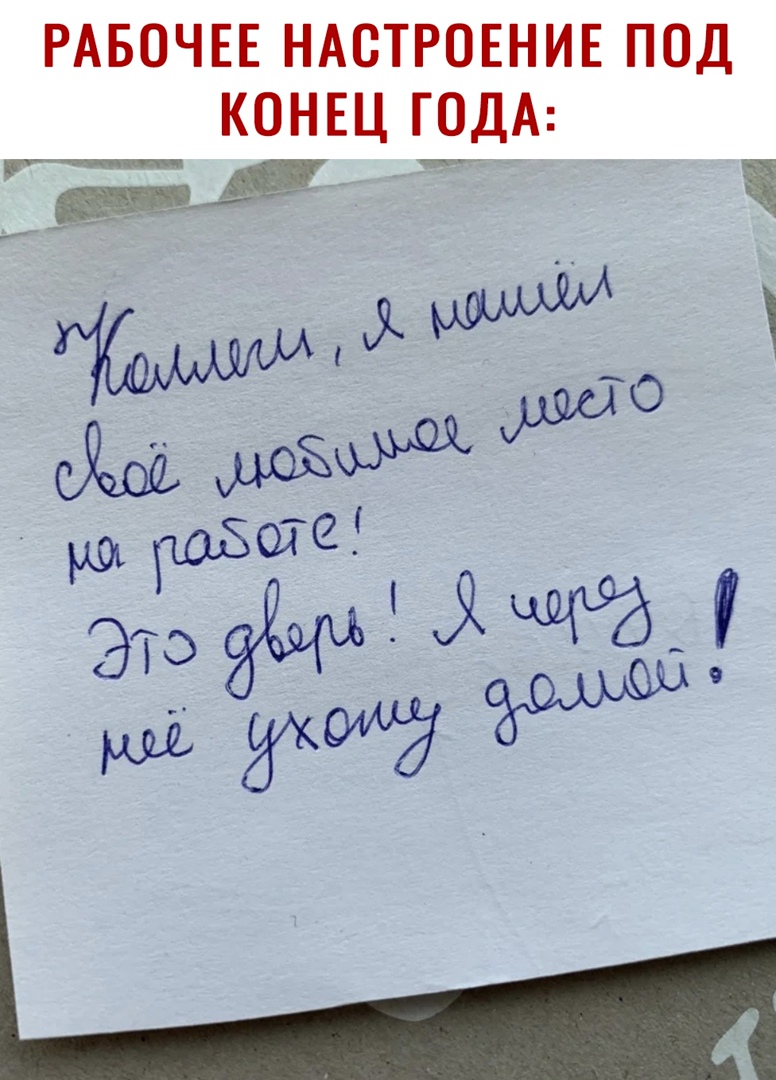 РАБОЧЕЕ НАСТРОЕНИЕ ПОД
КОНЕЦ ГОДА:
Коллеги, я нашёл
своё любимое место
на работе!
Это дверь! Я через
неё ухожу домой!